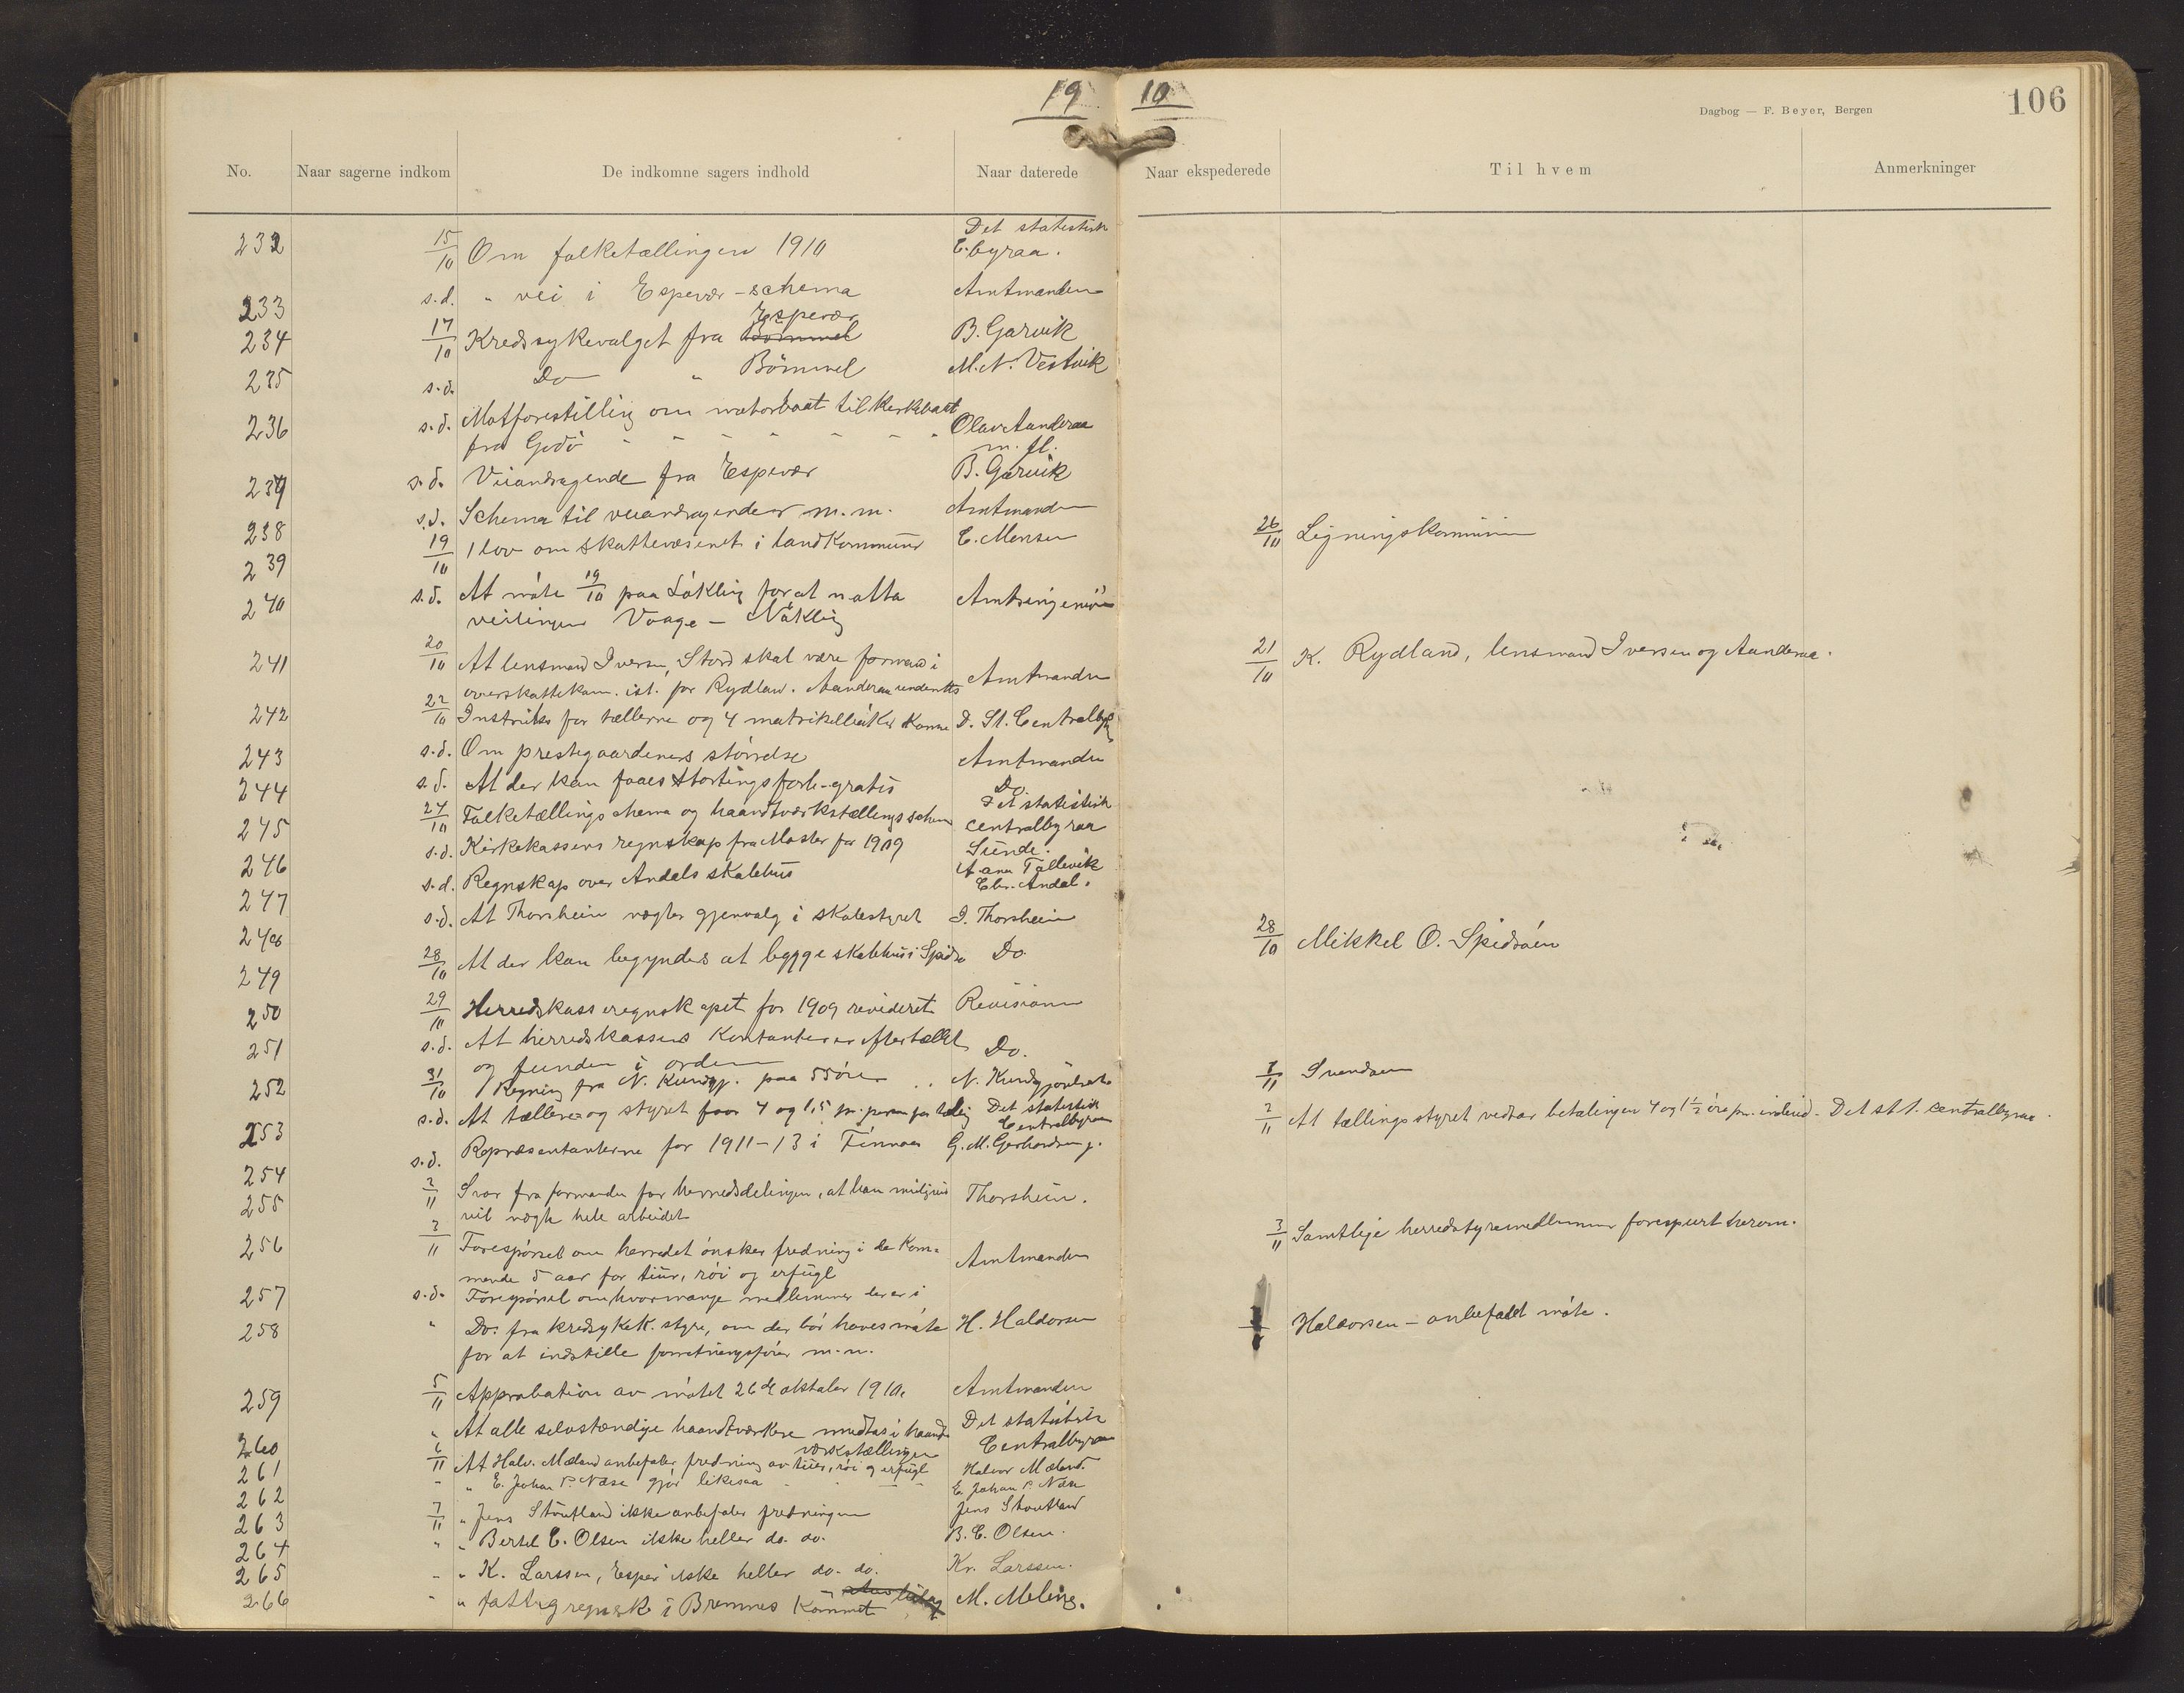 19 10
Dagbog — F. Beyer, Bergen
106
No. Naar sagerne indkom De indkomne sagers indhold Naar daterede Naar ekspederede Til hvem Anmerkninger
232 15/10 Om folketællingen 1910 Det statistisk C.byraa.
233 s.d. " vei i Espevær - schema Amtmanden
234 17/10 Kredssykevalget fra Bømmel Espevær B. Garvik
235 s.d. Do " Bömmel M. N. Vestvik
236 s.d. Motforestilling om motorbaat til Kirkebaat Olav Aanderaa
fra Godö m. fl.
237 s.d. Veiandragende fra Espevær B. Garvik
238 s.d. Schema til veiandragender m.m. Amtmanden
239 19/10 1 lov om skattevæsenet i landkommuner C. Monsen 26/10 Ligningskommisionen
240 s.d. At möte 19/10 paa Lökling for at
veilinjen Vaage - Amtsingeniör
241 20/10 At lensmand Iversen, Stord skal være formand i Amtmanden 21/10 K. Rydland, lensmand Iversen og Aanderaa.
overskattekom. ist. for Rydland. Aanderaa
242 22/10 Instruks for tællerne og 4 matrikelutkr. D. St. Centralby
243 s.d. Om prestegaardenes störrelse Amtmanden
244 s.d. At der kan faaes Stortingsforh. gratis Do.
245 24/10 Folketællingschema og haandtværkstællingsschema Det statistisk centralbyraa
246 s.d. Kirkekassens regnskap fra Moster for 1909 Sunde.
247 s.d. Regnskap over Andals skolehus Aanen Tollevik
Chr. Andal.
248 s.d. At Thorsheim nægter gjenvalg i skolestyret I. Thorsheim
249 28/10 At der kan begyndes at bygge skolehus i Spidsö Do. 28/10 Mikkel O. Spidsöen
250 29/10 Herredskasseregnskapet for 1909 revideret Revisionen
251 s.d. At herredskassens Kontanter er eftertællet Do.
og funden i orden
252 31/10 1 Regning fra N. Kundgj. paa 55 öre N. Kundgjörelsest. 1/11 Svendsen
253 s.d. At tællerne og styret faar 4 og 1,5 pr. person for tælling Det statistisk Centralbyraa 2/11 At tællingsstyret vedtar betalingen 4 og 1½ öre pr. individ. - Det st. centralbyraa.
254 s.d. Repræsentanterne for 1911-13 i Finnaas G. M. Gerhardsen
255 2/11 Svar fra formanden for herredsdelingen, at han muligens Thorsheim.
vil nægte hele arbeidet
256 2/11 Forespörsel om herredet önsker fredning i de kom- Amtmanden 3/11 Samtlige herredsstyremedlemmer forespurt herom.
mende 5 aar for tiur, röi og erfugl
257 s.d. Forespörsel om hvormange medlemmer der er i
258 " Do. fra kredssykek. styre, om der bör haves möte H. Haldorsen Haldorsen - anbefalt möte.
for at indstille forretningsförer m.m.
259 5/11 Approbation av mötet 26de oktober 1910. Amtmanden
260 " At alle selvstændige haandtværkere medtas i haand- Det statistisk
værkstællingen Centralbyraa
261 6/11 At Halv. Mæland anbefaler fredning av tiur, röi og erfugl Halvor Mæland.
262 " " E. Johan P. Næse gjör likesaa E. Johan P. Næse
263 7/11 " Jens Stoutland ikke anbefaler fredningen Jens Stoutland
264 " " Bertel C. Olsen ikke heller do. do. B. C. Olsen.
265 " " K. Larssen, Espev. ikke heller do. do. Kr. Larssen.
266 " " fattigregnsk. i Bremnes kommet M. Meling.